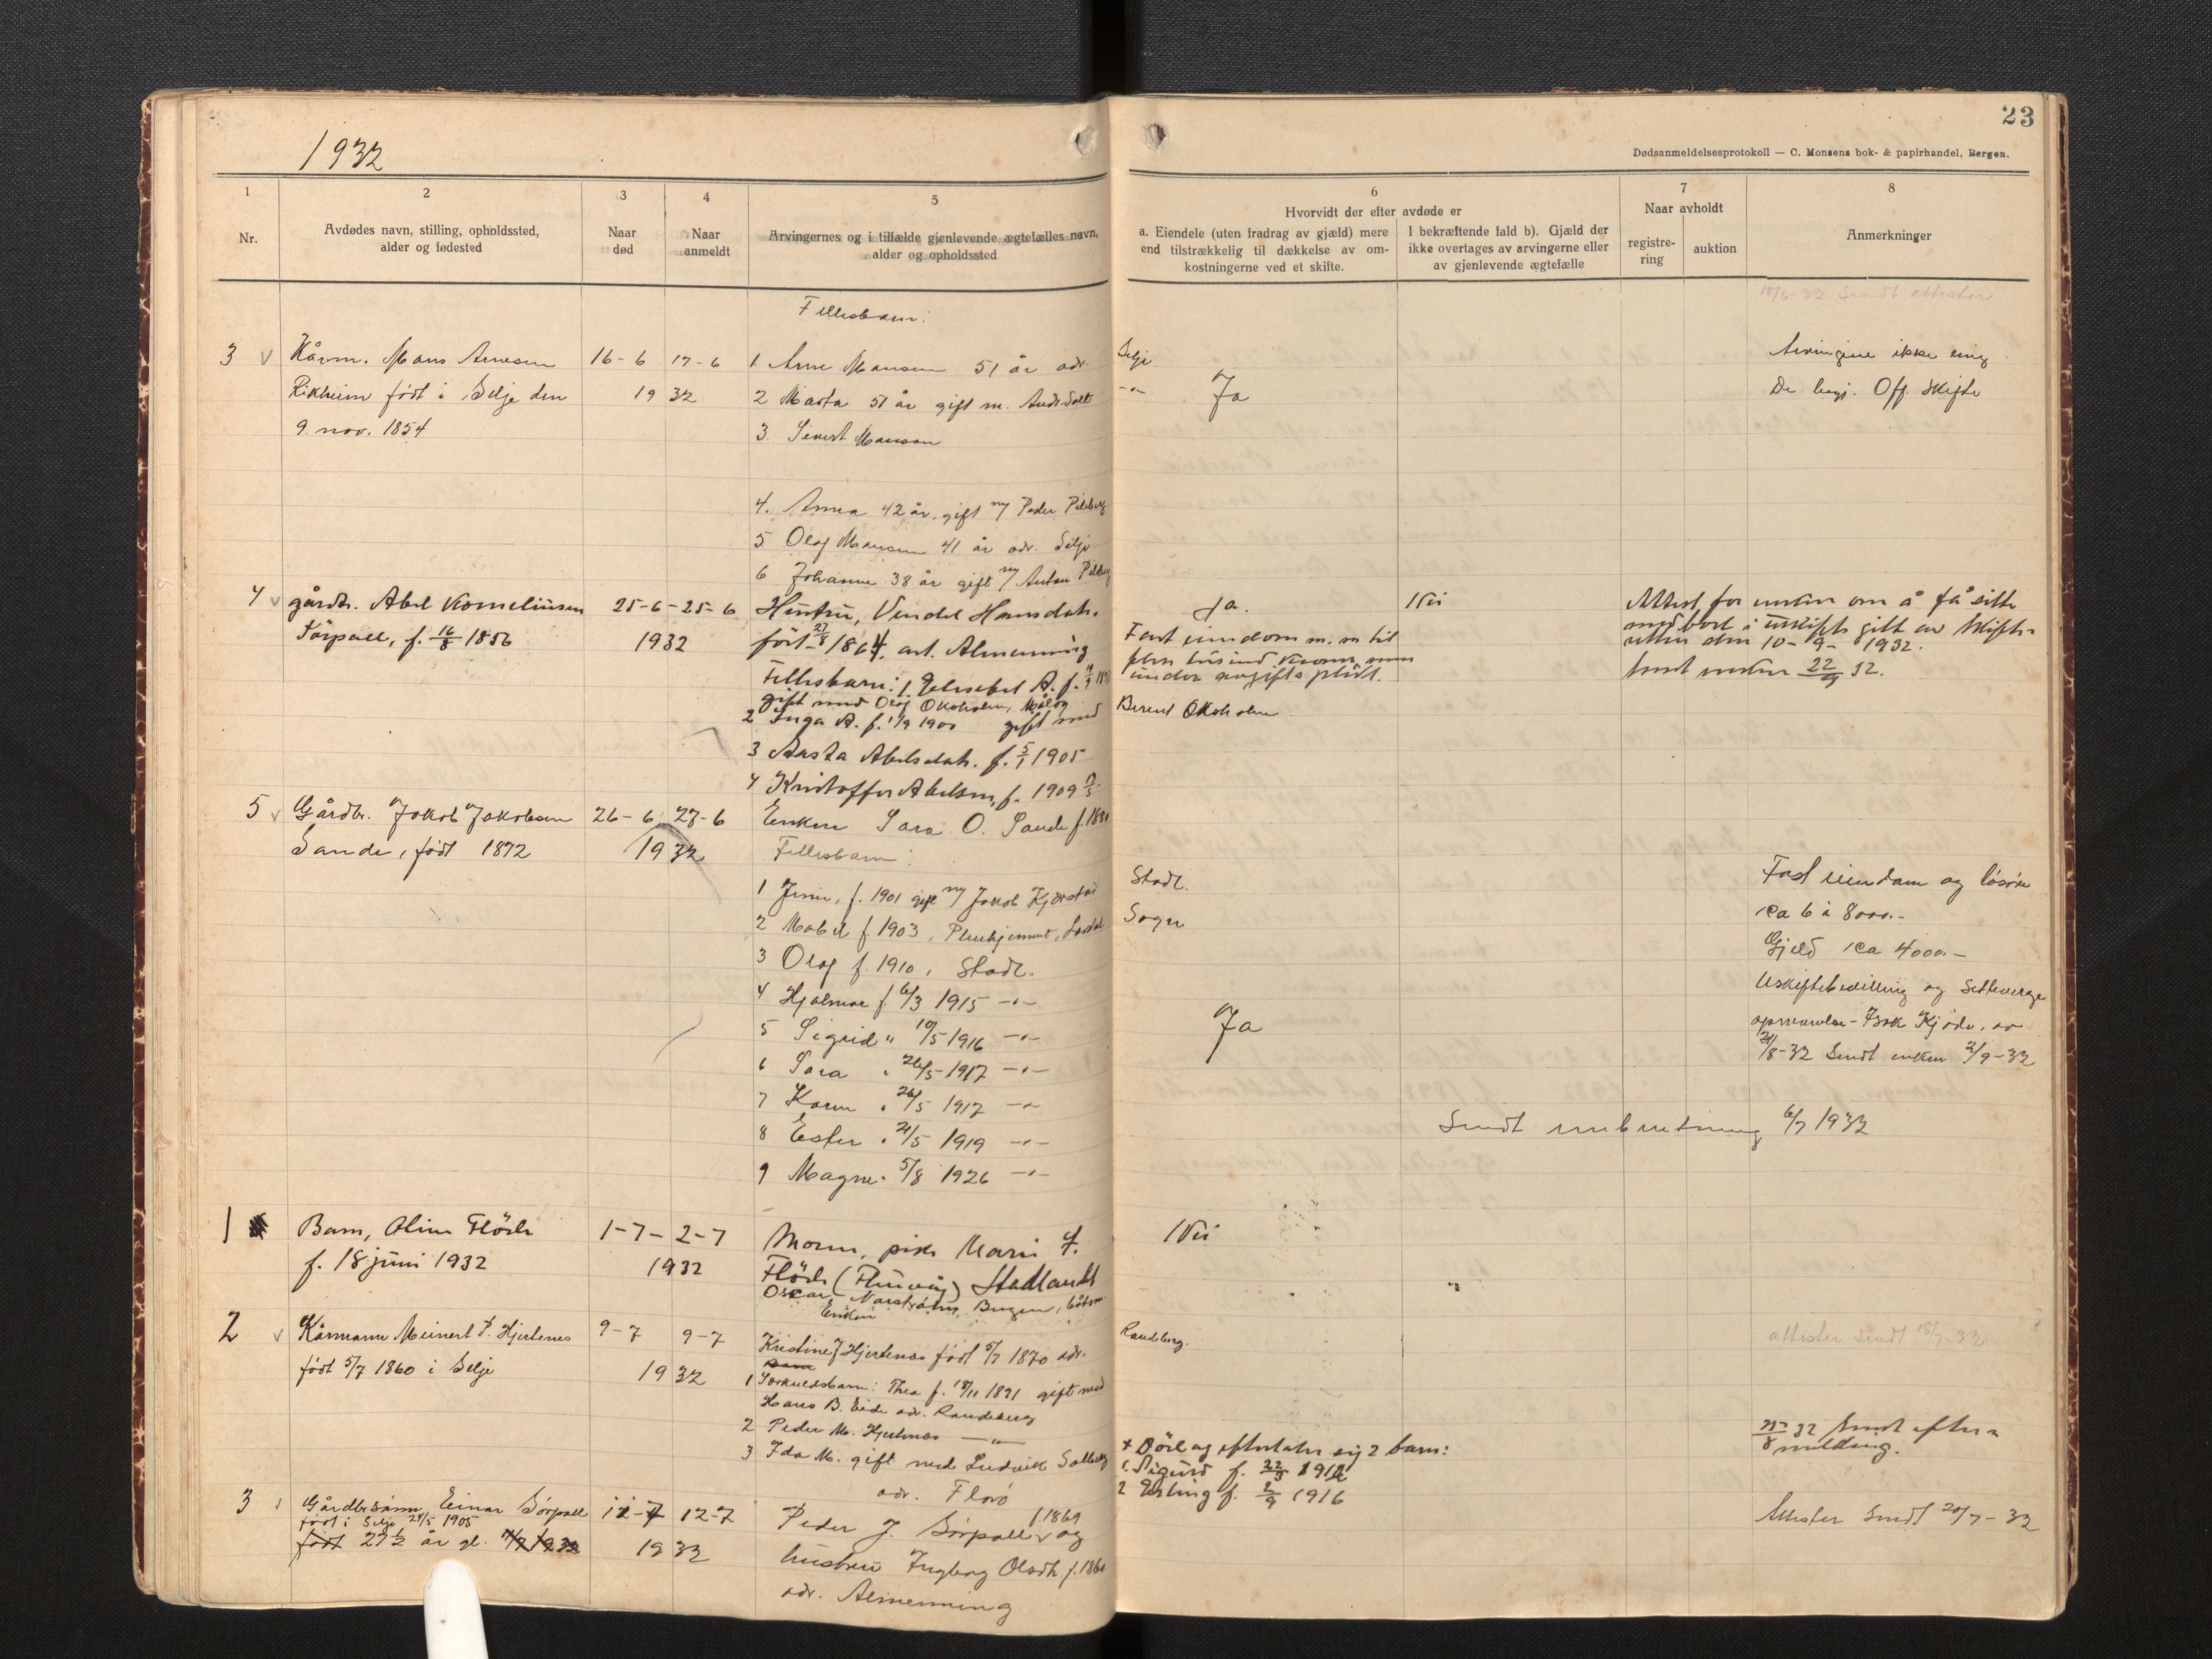 1932
23
Dødsanmeldelsesprotokoll — C. Monsens bok- & papirhandel, Bergen.
1
Nr.
2
Avdødes navn, stilling, opholdssted,
alder og fødested
3
Naar
død
4
Naar
anmeldt
5
Arvingernes og i tilfælde gjenlevende ægtefælles navn,
alder og opholdssted
6
Hvorvidt der efter avdøde er
a. Eiendele (uten fradrag av gjæld) mere
end tilstrækkelig til dækkelse av om-
kostningerne ved et skifte.
I bekræftende fald b). Gjæld der
ikke overtages av arvingerne eller
av gjenlevende ægtefælle
7
Naar avholdt
registre-
ring
auktion
8
Anmerkninger
18/6-32 Sendt attester
Fellesbarn:
3 Kårm. Mons Arnesen 16-6 17-6 1 Arne Monsen 51 år adr. Selje
Arvingene ikke enig
Rikheim født i Selje den 1932 2 Marta 51 år gift m. Ja
De begj. Off. Skifte
9. nov. 1854 3. Sivert Monsen
4. Anna 42 år, gift m/ Peder
5 Olaf Monsen 41 år adr. Selje
6 Johanne 38 år gift m/ Anton
4 gårdbr. Abel Korneliusen 25-6-25-6 Hustru, Vendel Hansdatr. Ja. Nei
Attest for enken om å få sitte
Sørpoll, f. 16/8 1856 1932 født 27/8 1864, Almenning
Fast eiendom m. m til
uskifte gitt av skifte-
retten den 10-9-1932.
under avgifts plikt.
Sendt enken 22/9 32.
Fellesbarn: 1. Elisabet A. f.
gift med Olaf Okoholm, Måløy
2 Inga A. f. 1/9 1900 gift med Berent Okoholm
3 Aasta Abelsdatr. f. 5/1 1905
4 Kristoffer Abelsen, f. 1909
5 Gårdbr. Jakob Jakobsen 26-6 27-6 Enken Sara O. Sande f.
Sande, født 1872 1932 Fellesbarn:
1 Jenn, f. 1901 gift m/ Jakob Stadt.
Fast eiendom og løsøre
ca 6 à 8000.-
2 Mabel f. 1903, Pleiehjemmet, Sogn
3 Olaf f. 1910, Stadt.
Gjeld ca 4000.-
4 Hjalmar f 6/3 1915 -"-
Uskiftebevilling og Setteverge
5 Sigrid " 10/5 1916 -"- Ja
6 Sara " 26/5 1917 -"-
21/8-32 Sendt enken 2/9-32
7 Karen " 26/5 1917 -"-
8 Ester " 21/5 1919 -"-
Sendt innberetning 6/7 1932
9 Magne " 5/8 1926 -"-
1 Barn, Oline Flöde 1-7-2-7 Moren, pike Marie F. Nei
f. 18 juni 1932 1932 Stadlandt
Oscar Bergen,
Enken
2 Kårmann Meinert P. Hjertenes 9-7 9-7 Kristine J Hjertenes født 5/7 1870 adr. Raudeberg.
attester sendt 18/7-32
født 5/7 1860 i Selje 1932
1 Særkuldsbarn: Thea f. 18/11 1891 gift med
Hans B. Eide adr. Raudeberg
2 Peder M. Hjertenes -"-
3 Ida M. gift med Ludvik Solberg
adr. Florø
+ Död og efterlater sig 2 barn:
1. Sigurd f. 22/3 1912
2 Erling f. 2/9 1916
32 Sendt efter-
melding.
3 Gårdbr.sønn Einar Sørpoll 11-7 12-7 Peder J. Sørpoll f.1869 og
født i Selje 24/5 1905
Attester sendt 20/7-32
født 27 1/2 år gl. 1932 hustru Ingborg Olsdtr f.
adr. Almenning